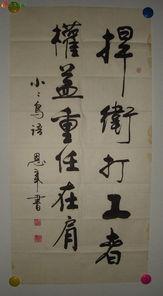 捍衛打工者
權益重任在肩
小小鳥語 恩來書